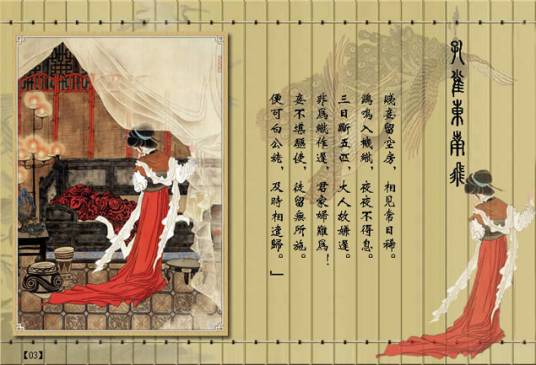 孔雀東南飛
賤妾留空房，相見常日稀。
鷄鳴入機織，夜夜不得息。
三日斷五匹，大人故嫌遲。
非爲織作遲，君家婦難爲！
妾不堪驅使，徒留無所施。
便可白公姥，及時相遣歸。」
【03】